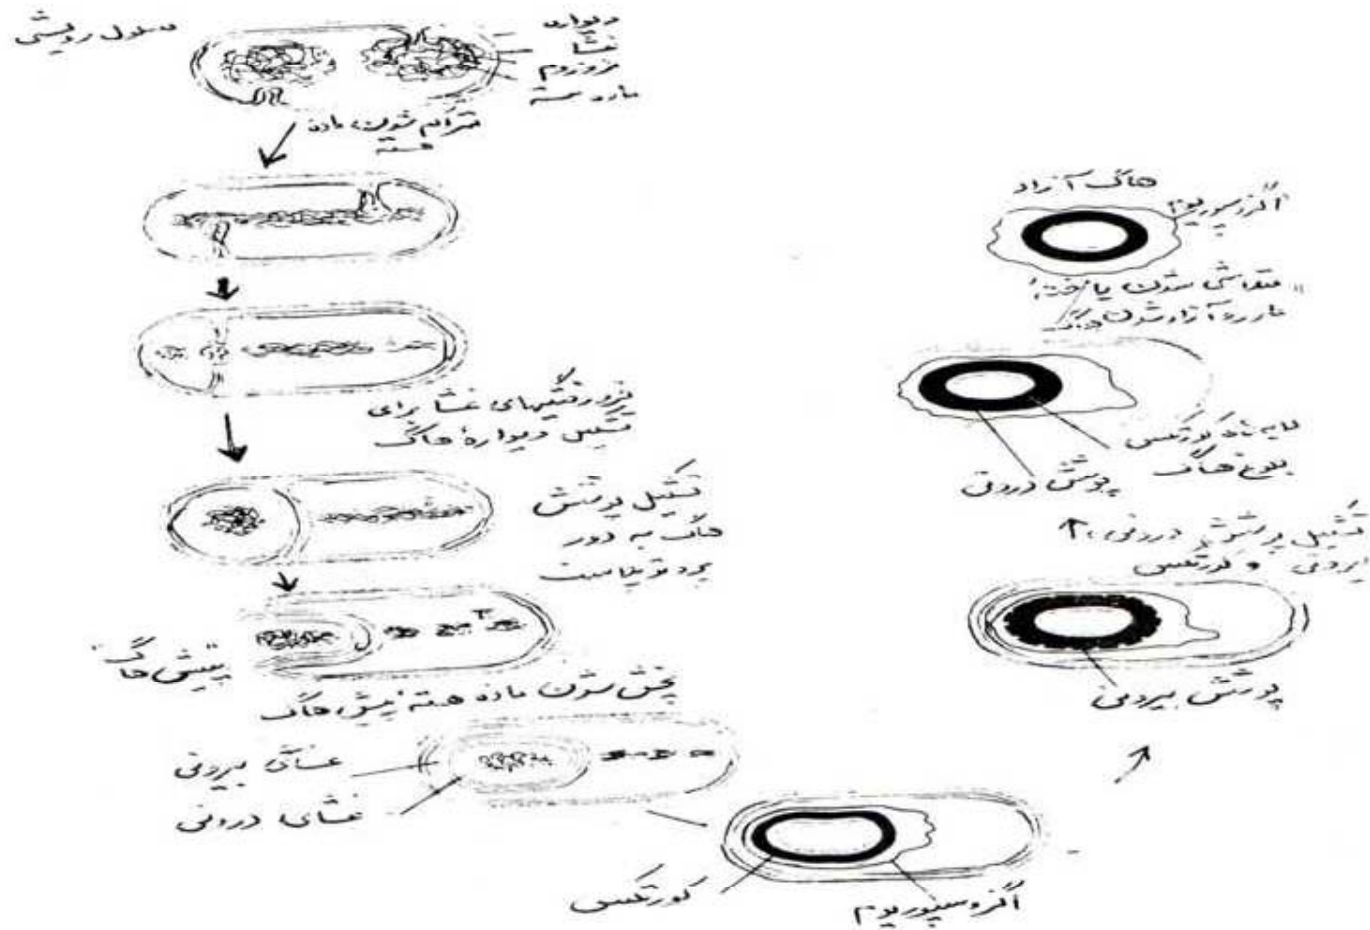 سلول رویشی
دیواره
غشا
مزوزوم
ماده هسته
متراکم شدن ماده
هسته
فرورفتگیهای غشا برای
تشکیل دیواره هاگ
تشکیل پوشش
هاگ به دور
پروتوپلاست
پیش هاگ
پخش شدن ماده هسته پیش هاگ
غشای بیرونی
غشای درونی
کورتکس
اگزوسپوریوم
پوشش بیرونی
تشکیل پوشش درونی،
بیرونی و کورتکس
پوشش درونی
کورتکس
بلوغ هاگ
متلاشی شدن یاخته
آزاد شدن
اگزوسپوریوم
هاگ آزاد